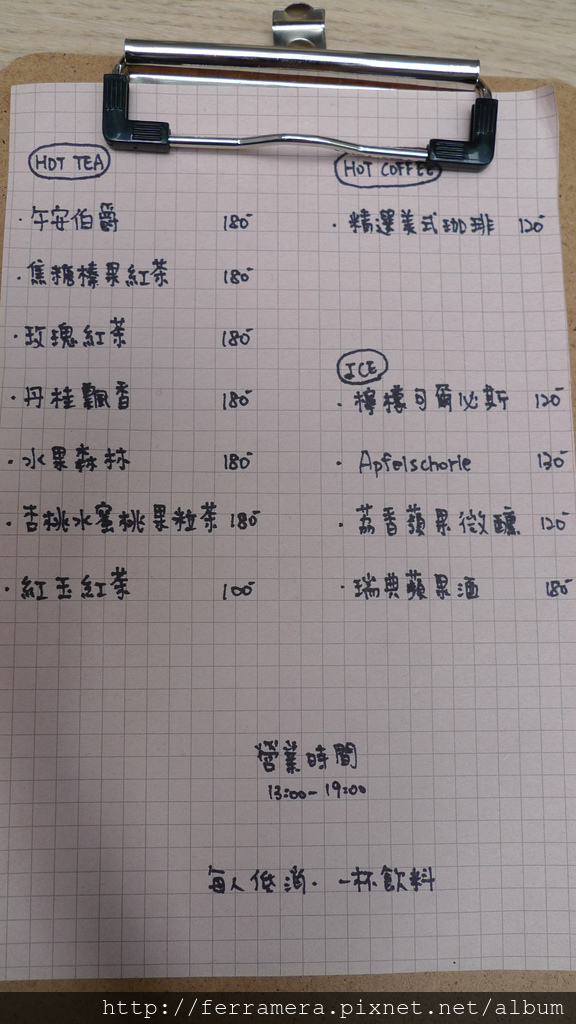 HOT TEA
·午安伯爵 180
·焦糖榛果紅茶 180
·玫瑰紅茶 180
·丹桂飄香 180
·水果森林 180
·杏桃水蜜桃果粒茶 180
·紅玉紅茶 100
HOT COFFEE
·精選美式珈琲 120
ICE
·檸檬可爾必斯 120
·Apfelschorle 120
·荔香蘋果微醺 120
·瑞典蘋果酒 180
營業時間
13:00-19:00
每人低消·一杯飲料
http://ferramera.pixnet.net/album